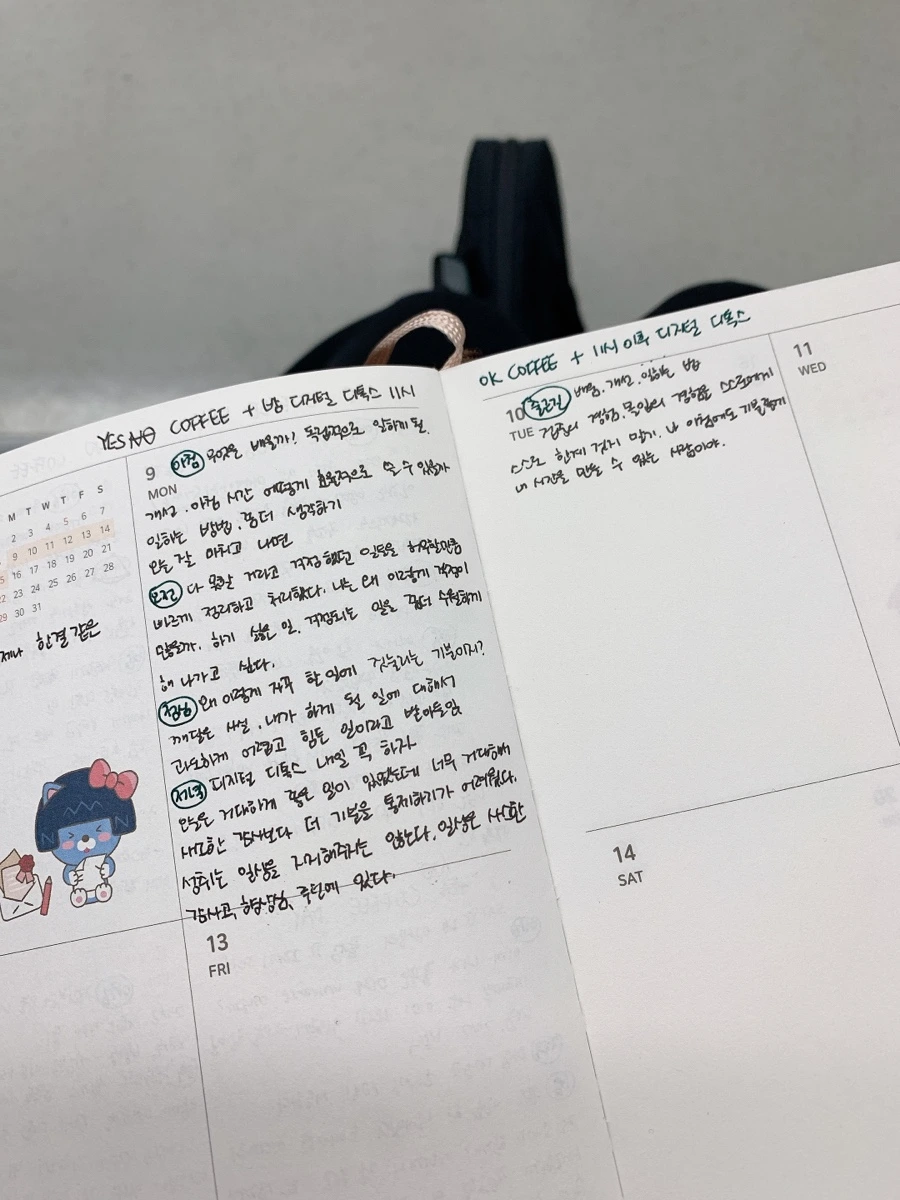 YES NO COFFEE + 밤 디지털 디톡스 11시
M T W T F S
2 3 4 5 6 7
9 10 11 12 13 14
16 17 18 19 20 21
23 24 25 26 27 28
30 31
한결같은
9
MON
아침 무엇을 배울까? 독립적으로 일하게 될
개선. 아침 시간 어떻게 효율적으로 쓸 수 있을까
일하는 방법. 좀더 생각하기
오늘 잘 마치고 나면
오전 다 못할 거라고 걱정했던 일들을 허무할만큼
빠르게 정리하고 처리했다. 나는 왜 이렇게 걱정이
많을까. 하기 싫은 일. 걱정되는 일을 좀더 수월하게
해 나가고 싶다.
왜 이렇게 자꾸 할 일에 짓눌리는 기분이지?
깨달은 사실. 내가 하게 될 일에 대해서
과도하게 어렵고 힘든 일이라고 받아들임
저녁 디지털 디톡스 내일 꼭 하자
오늘은 거대하게 좋은 일이 있었는데 너무 거대해서
사소한 감사보다 더 기분을 통제하기가 어려웠다.
성취는 일상을 지지해주지는 않는다. 일상은 사소한
감사고, 항상성, 루틴에 있다.
13
FRI
OK COFFEE + 11시 이후 디지털 디톡스
10
TUE
출근전 배움, 개선, 일하는 법
긍정의 경험, 몰입의 경험을 스스로에게
스스로 한계 짓지 말기. 나 아침에도 기분좋게
내 시간을 만들 수 있는 사람이야.
11
WED
14
SAT